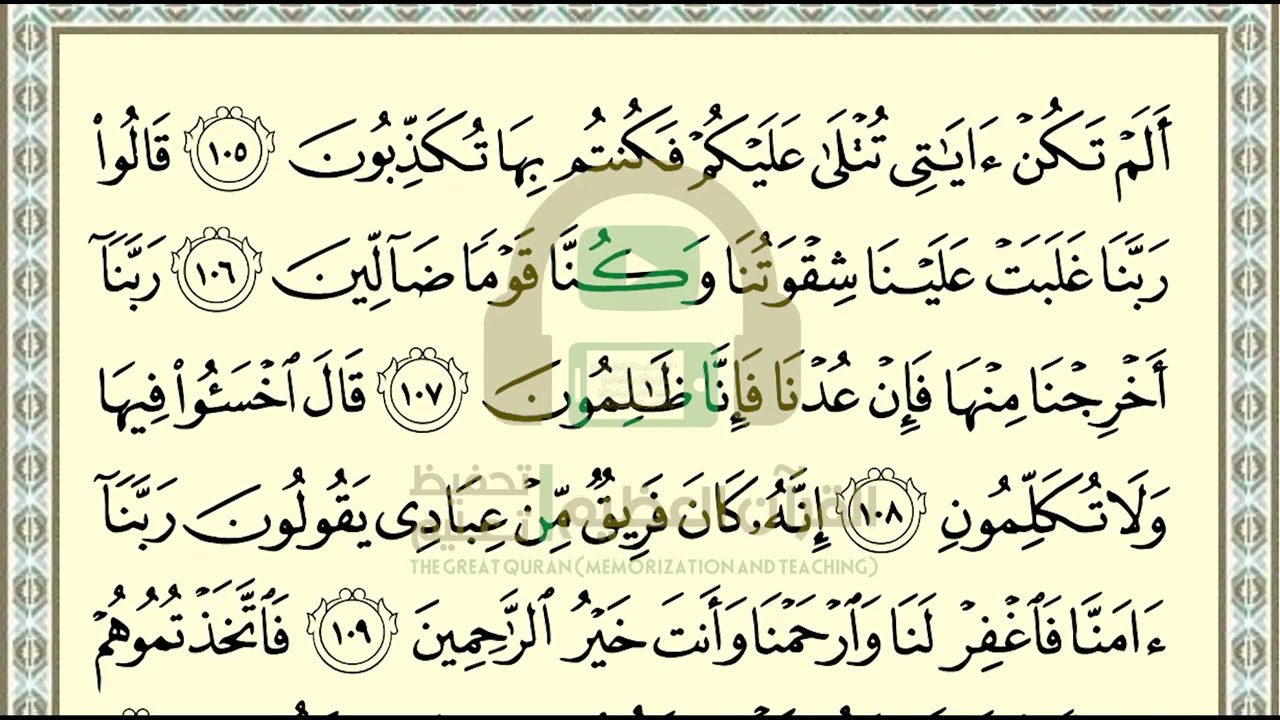 أَلَمْ تَكُنْ ءَايَٰتِى تُتْلَىٰ عَلَيْكُمْ فَكُنتُم بِهَا تُكَذِّبُونَ ١٠٥ قَالُوا۟
رَبَّنَا غَلَبَتْ عَلَيْنَا شِقْوَتُنَا وَكُنَّا قَوْمًا ضَآلِّينَ ١٠٦ رَبَّنَآ
أَخْرِجْنَا مِنْهَا فَإِنْ عُدْنَا فَإِنَّا ظَٰلِمُونَ ١٠٧ قَالَ ٱخْسَـُٔوا۟ فِيهَا
وَلَا تُكَلِّمُونِ ١٠٨ إِنَّهُۥ كَانَ فَرِيقٌ مِّنْ عِبَادِى يَقُولُونَ رَبَّنَآ
القرآن العظيم تحفيظ تعليم
THE GREAT QURAN (MEMORIZATION AND TEACHING)
ءَامَنَّا فَٱغْفِرْ لَنَا وَٱرْحَمْنَا وَأَنتَ خَيْرُ ٱلرَّٰحِمِينَ ١٠٩ فَٱتَّخَذْتُمُوهُمْ